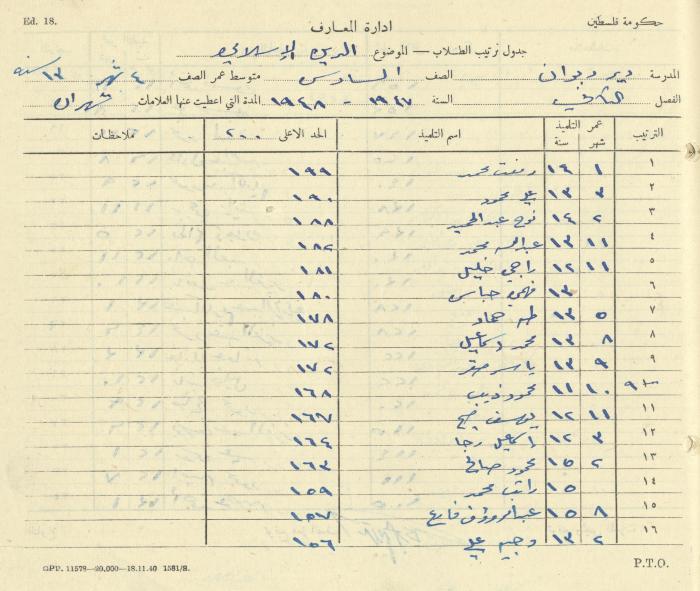 Ed. 18.
حكومة فلسطين
ادارة المعارف
جدول ترتيب الطلاب — الموضوع الدين الإسلامي
المدرسة دير دبوان الصف السادس متوسط عمر الصف ٤ شهر ١٣ سنة
الفصل الثاني السنة ١٩٤٧ - ١٩٤٨ المدة التي اعطيت عنها العلامات شهران
الترتيب عمر التلميذ شهر سنة اسم التلميذ الحد الاعلى ٢٠٠ ملاحظات
١ ١ ١٤ رفعت محمد ١٩٩
٢ ٣ ١٣ علي محمود ١٩٠
٣ ٢ ١٤ نوح عبد الحميد ١٨٨
٤ ١١ ١٣ عبدالله محمد ١٨٢
٥ ١١ ١٢ راجي خليل ١٨١
٦ ١٣ فهمي عباس ١٨٠
٧ ٥ ١٣ طه حماد ١٧٨
٨ ٨ ١٣ محمد اسماعيل ١٧٢
٩ ٩ ١٣ ياسر صقر ١٧٢
١٠ ١٠ ١١ محمود ذيب ١٦٨
١١ ١١ ١٢ يوسف ١٦٧
١٢ ٣ ١٢ اسماعيل رجا ١٦٤
١٣ ٢ ١٥ محمود صالح ١٦٣
١٤ ١٥ راتب محمد ١٥٩
١٥ ٨ ١٥ عبدالرؤوف فارع ١٥٧
١٦ ٢ ١٣ وجيه علي ١٥٦
GPP. 11578—20,000—18.11.40 1581/S.
P.T.O.